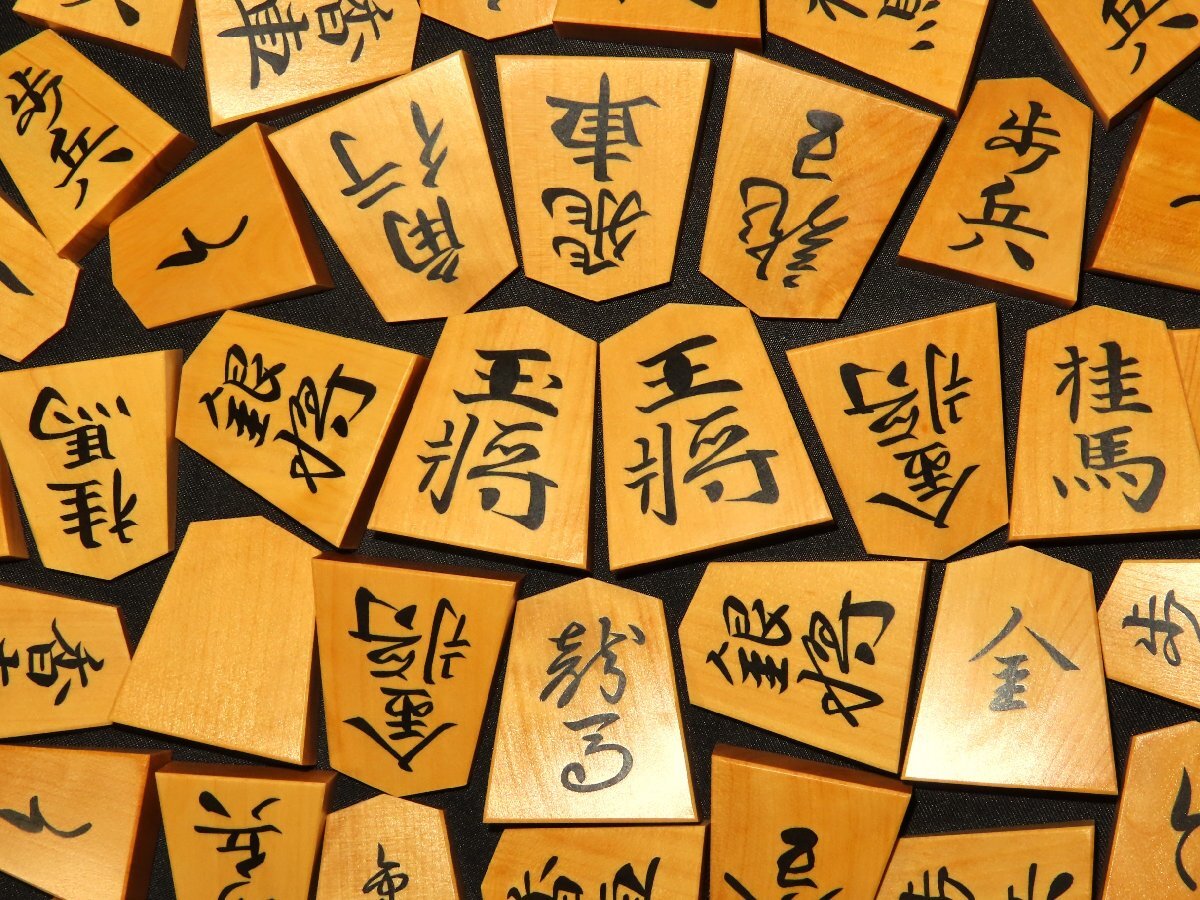 香車
歩兵
角行
飛車
龍王
歩兵
歩兵
と
桂馬
銀将
玉将
玉将
金将
桂馬
香
金将
龍馬
銀将
金
歩
と
兵